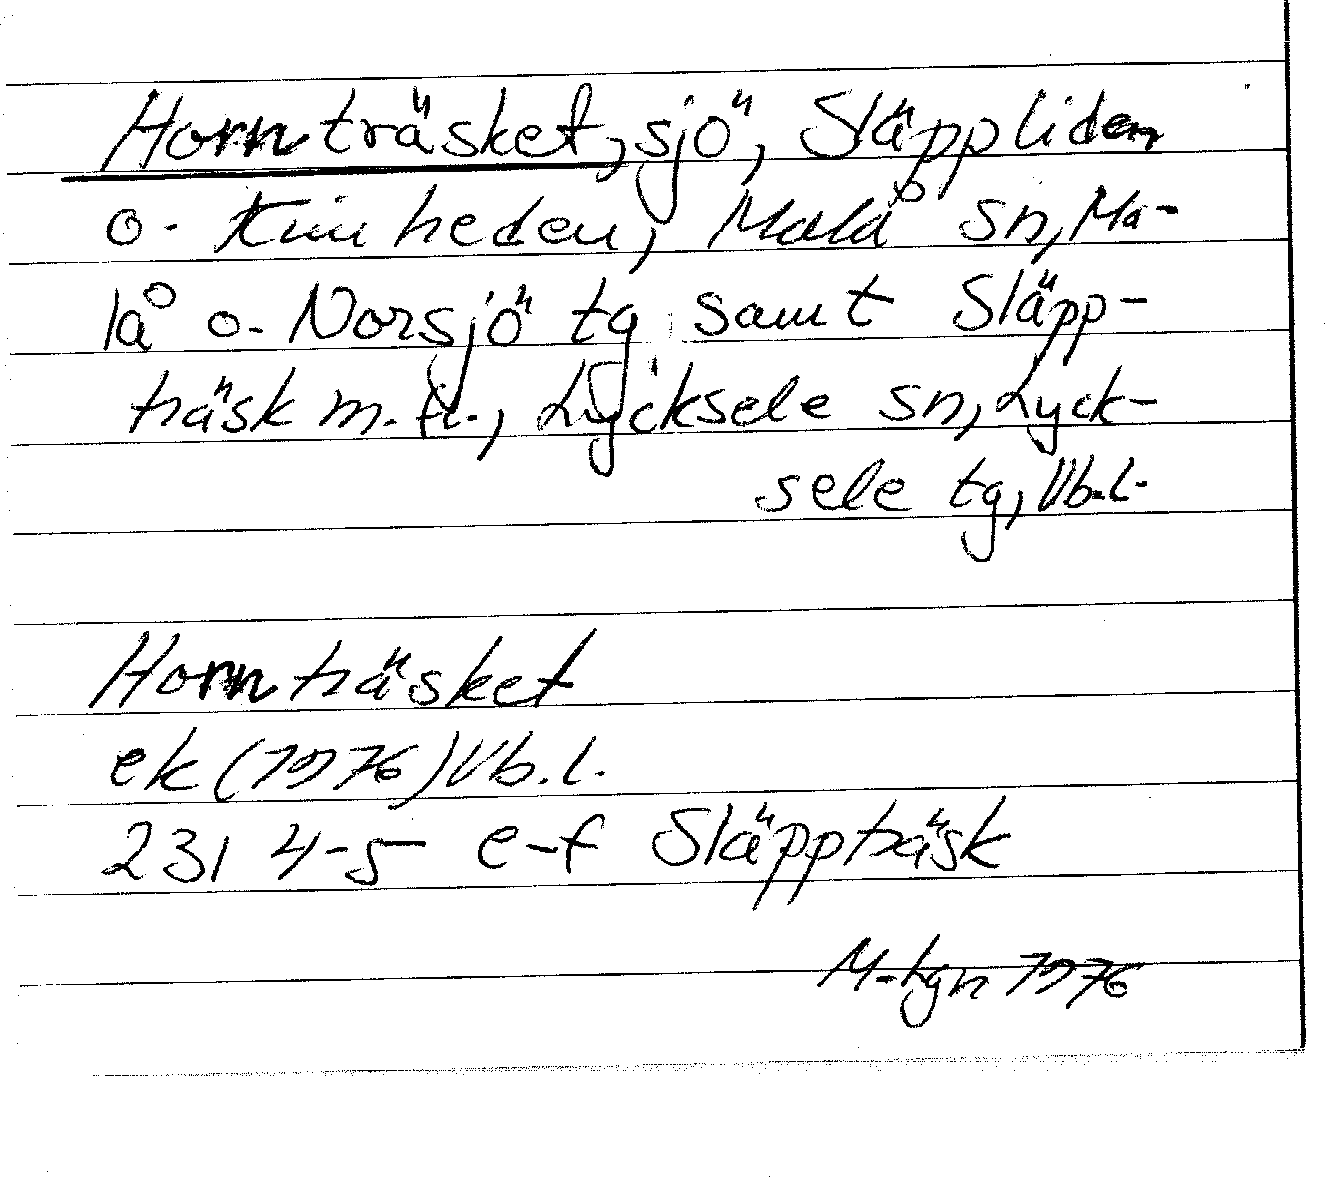 Hornträsket, sjö, Släppliden
o. heden, Malå sn, Ma-
lå o. Norsjö tg samt Släpp-
träsk m.fl., Lycksele sn, Lyck-
sele tg, Vb.l.
Hornträsket
ek (1976) Vb.l.
231 4-5 e-f Släppträsk
M-tgn 1976